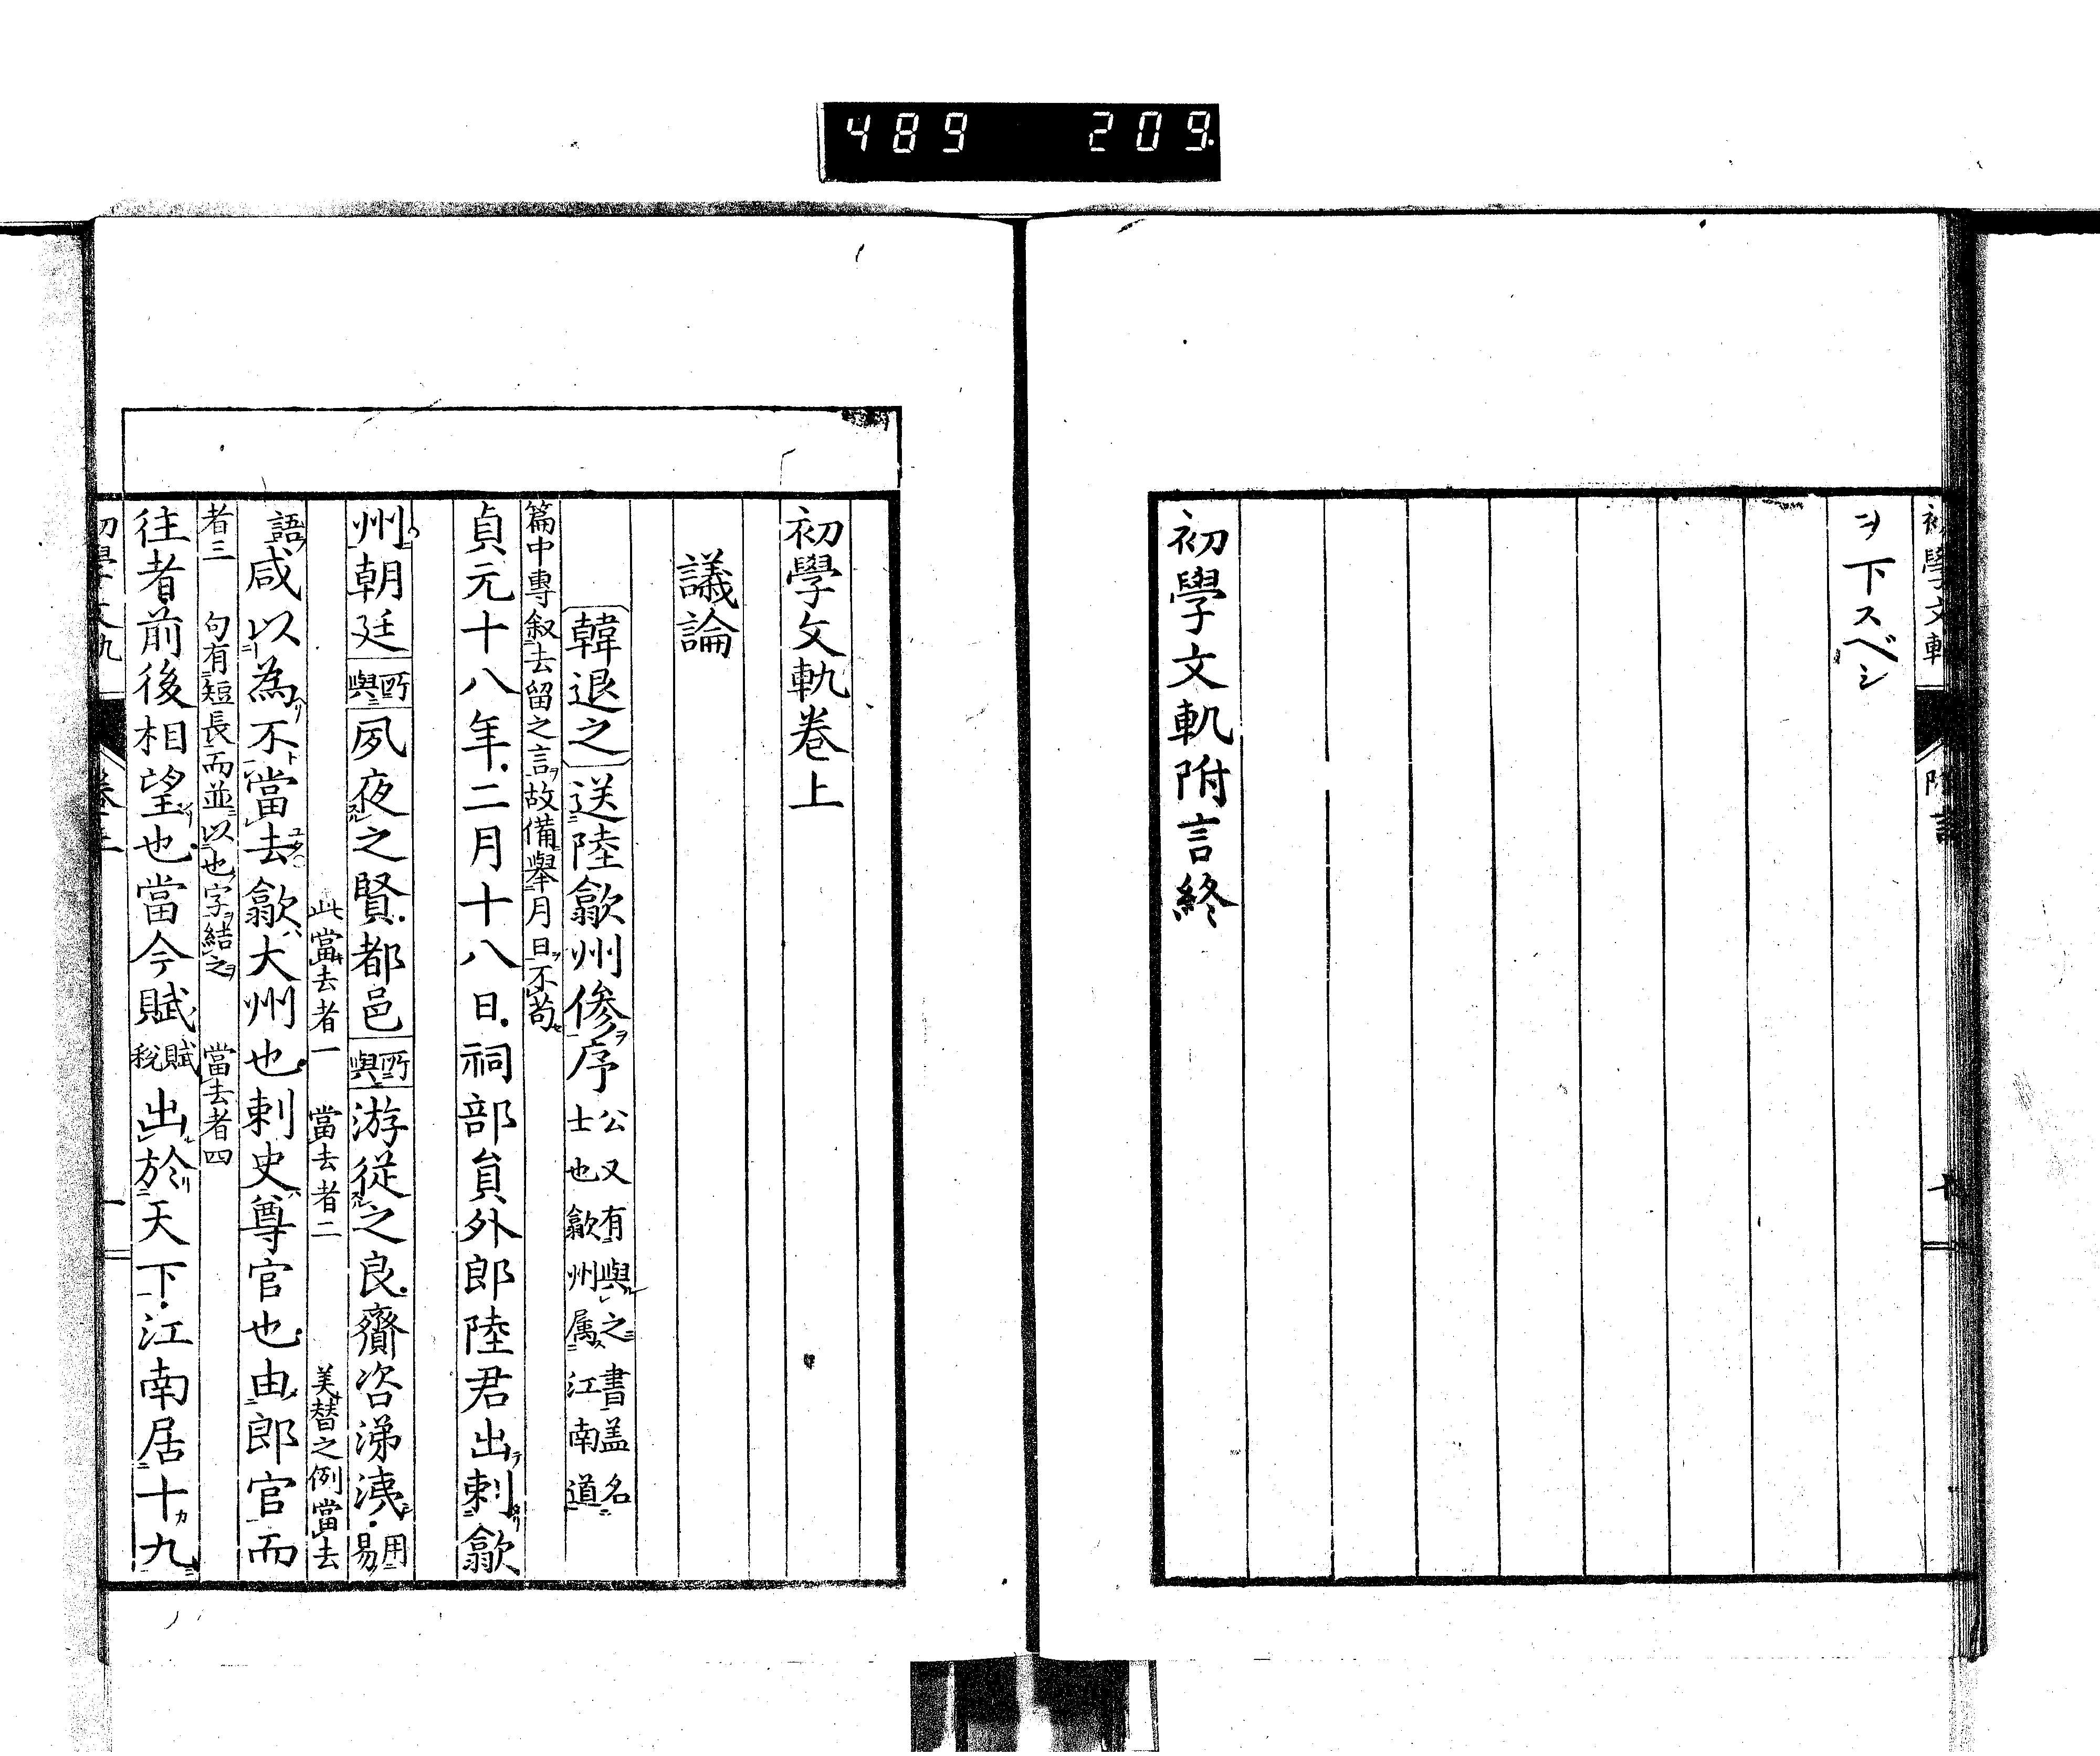 489 209.
初學文軌 附言 十
ヲ下スベシ
初學文軌附言終
初學文軌巻上
議論
韓退之 送陸歙州傪序 公又有與之書盖名士也歙州属江南道
篇中專叙去留之言故備擧月日不苟
貞元十八年二月十八日祠部貟外郎陸君出刺歙
州朝廷所與夙夜之賢都邑所與游從之良齎咨涕洟用易
此當去者一 當去者二 美替之例當去
語咸以為不當去歙大州也刺史尊官也由郎官而
者三 句有短長而並以也字結之 當去者四
往者前後相望也當今賦賦税出於天下江南居十九
初學文軌 巻上 一